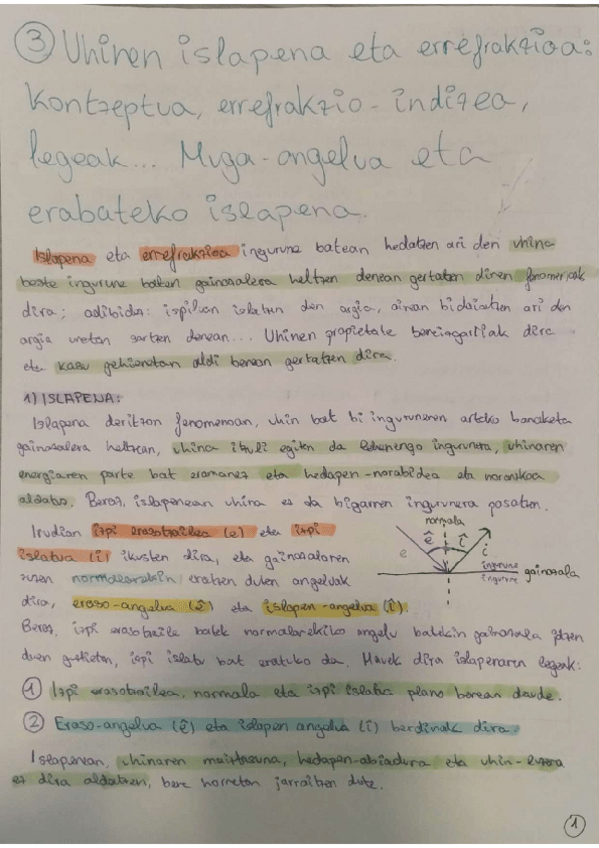 ③ Uhinen islapena eta errefrakzioa:
kontzeptua, errefrakzio-indizea,
legeak... Muga-angelua eta
erabateko islapena.
Islapena eta errefrakzioa ingurune batean hedatzen ari den uhina
beste ingurune baten gainazalera heltzen denean gertatzen diren fenomenoak
dira; adibidez: ispiluan islatzen den argia, airean bidaiatzen ari den
argia uretan sartzen denean... Uhinen propietate bereizgarriak dira
eta kasu gehienetan aldi berean gertatzen dira.
1) ISLAPENA:
Islapena deritzon fenomenoan, uhin bat bi inguruneren arteko banaketa
gainazalera heltzean, uhina itzuli egiten da lehenengo ingurunera, uhinaren
energiaren parte bat eramanez eta hedapen-norabidea eta noranzkoa
aldatuz. Beraz, islapenean uhina ez da bigarren ingurunera pasatzen.
Irudian izpi erasotzailea (e) eta izpi
islatua (i) ikusten dira, eta gainazalaren
zuzen normalarekin eratzen duten angeluak
dira, eraso-angelua (ê) eta islapen-angelua (î).
normala
e ê î i
ingurune
ingurune
gainazala
Beraz, izpi erasotzaile batek normalarekiko angelu batekin gainazala jotzen
duen guztietan, izpi islatu bat eratuko da. Hauek dira islapenaren legeak:
① Izpi erasotzailea, normala eta izpi islatua plano berean daude.
② Eraso-angelua (ê) eta islapen angelua (î) berdinak dira.
Islapenean, uhinaren maiztasuna, hedapen-abiadura eta uhin-luzera
ez dira aldatzen, bere horretan jarraitzen dute.
1